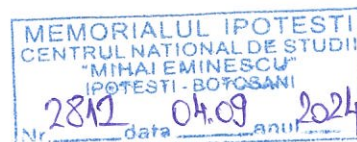 MEMORIALUL IPOTESTI
CENTRUL NATIONAL DE STUDII
"MIHAI EMINESCU"
IPOTESTI - BOTOSANI
Nr. 2812 data 04.09 anul 2024